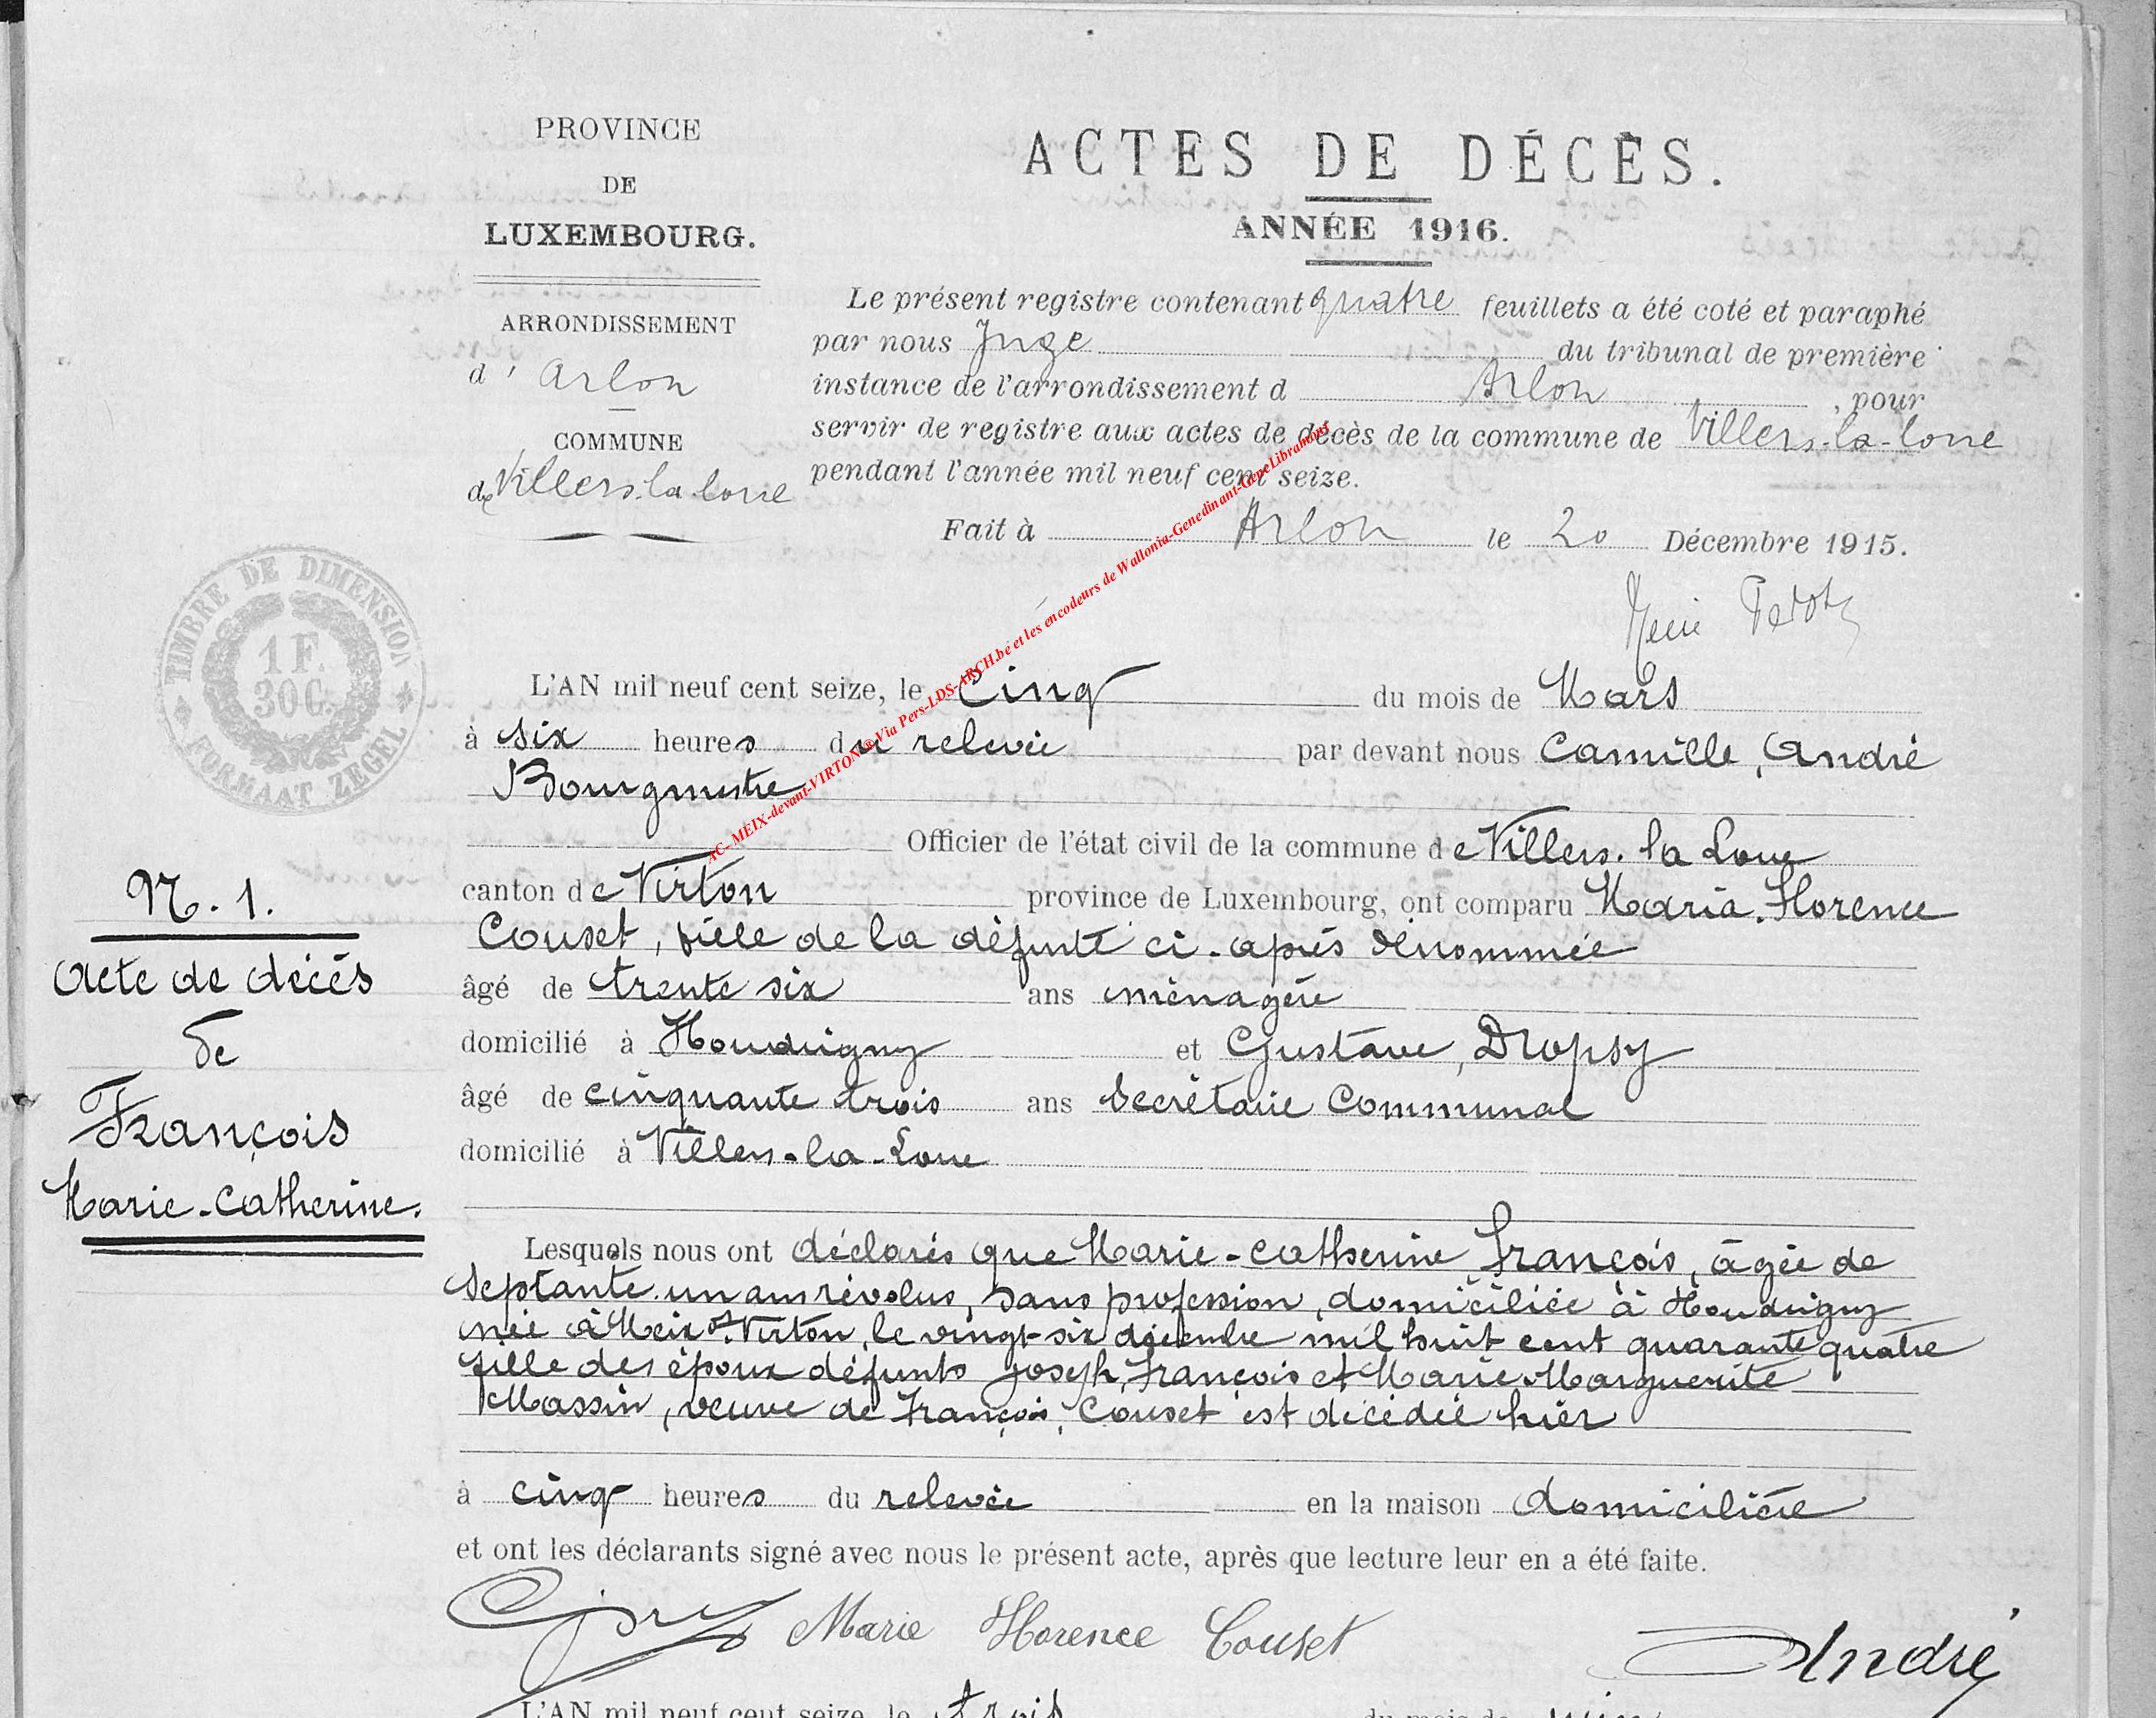 PROVINCE
DE
LUXEMBOURG.
ARRONDISSEMENT
d' Arlon
COMMUNE
de Villers-la-loue
ACTES DE DÉCÈS.
ANNÉE 1916.
Le présent registre contenant quatre feuillets a été coté et paraphé
par nous Juge du tribunal de première
instance de l'arrondissement d Arlon, pour
servir de registre aux actes de décès de la commune de Villers-la-loue
pendant l'année mil neuf cent seize.
Fait à Arlon le 20 Décembre 1915.
TIMBRE DE DIMENSION
1 F.
30 C.
FORMAAT ZEGEL
AC-MEIX-devant-VIRTON ® Via Pers-LDS-ARCH.be et les encodeurs de Wallonia-Genedinant-GeneLibramont
L'AN mil neuf cent seize, le cinq du mois de Mars
à six heures du relevée par devant nous Camille, André
Bourgmestre
Officier de l'état civil de la commune de Villers-la Loue
canton de Virton province de Luxembourg, ont comparu Maria-Florence
Couset, fille de la défunte ci-après dénommée
âgé de trente six ans ménagère
domicilié à Houdrigny et Gustave, Dropsy
âgé de cinquante trois ans Secrétaire Communal
domicilié à Villers-la-Loue
N. 1.
Acte de décès
de
François
Marie-Catherine.
Lesquels nous ont déclarés que Marie-Catherine François, âgée de
septante-un ans révolus, sans profession, domiciliée à Houdrigny
née à Meix dt Virton, le vingt-six décembre mil huit cent quarante quatre
fille des époux défunts Joseph, François et Marie Marguerite
Massin, veuve de François, Couset est décédée hier
à cinq heures du relevée en la maison domiciliére
et ont les déclarants signé avec nous le présent acte, après que lecture leur en a été faite.
Marie Florence Couset
André
L'AN mil neuf cent seize, le trois du mois de